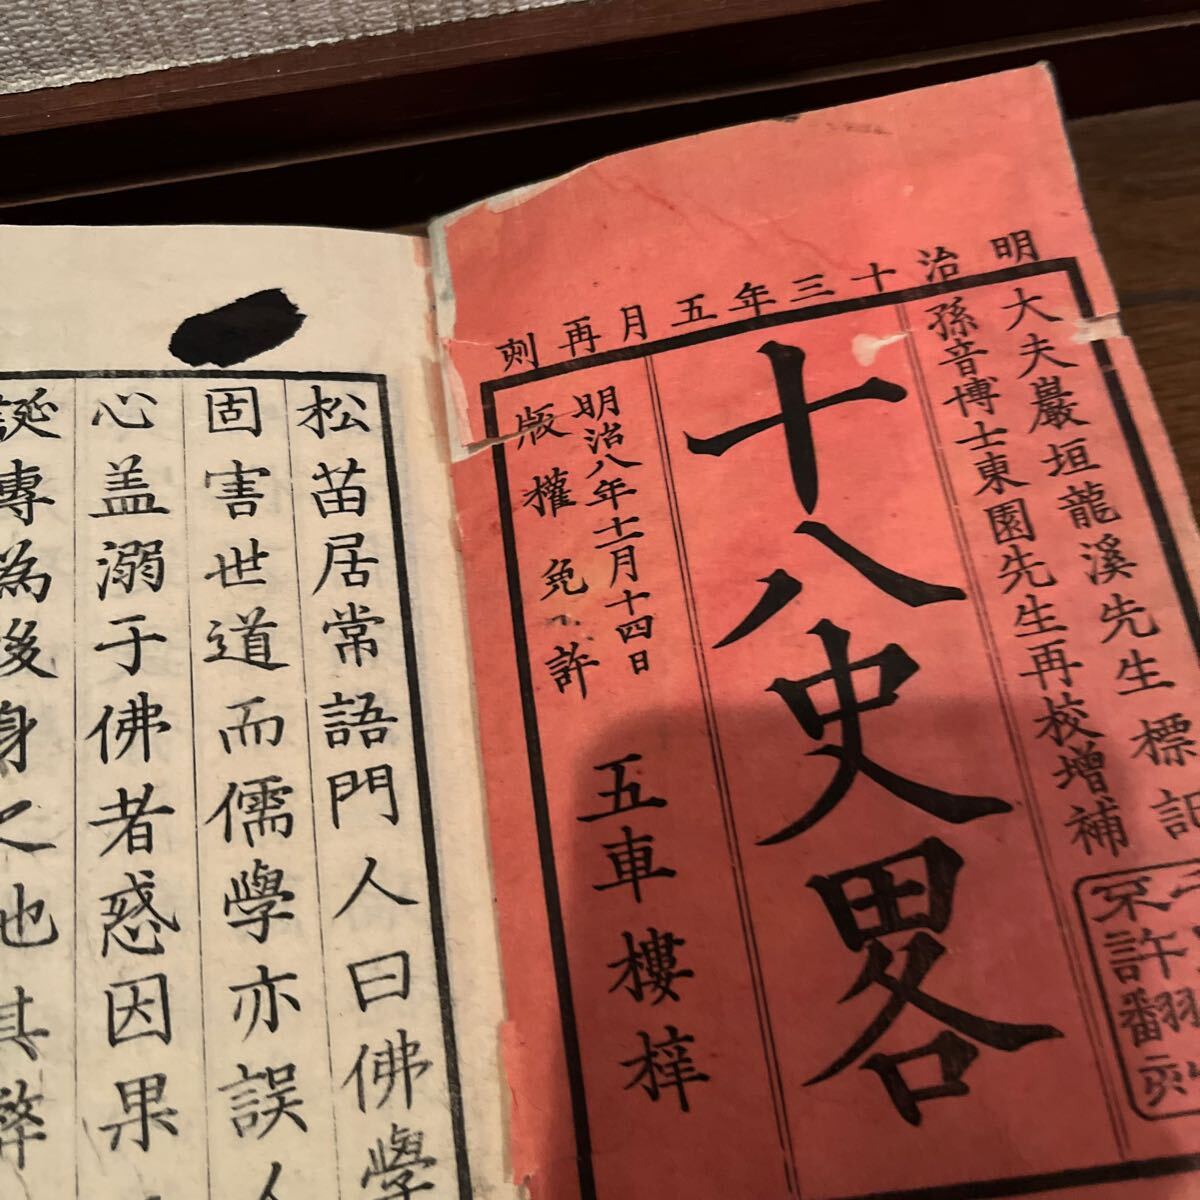 明治十三年五月再刻
大夫巖垣龍溪先生標記
孫音博士東園先生再校增補
十八史畧
明治八年十二月十四日
版權免許
五車樓梓
不許翻刻
松苗居常語門人曰佛學
固害世道而儒學亦誤人
心盖溺于佛者惑因果
誕專為後身之也其弊